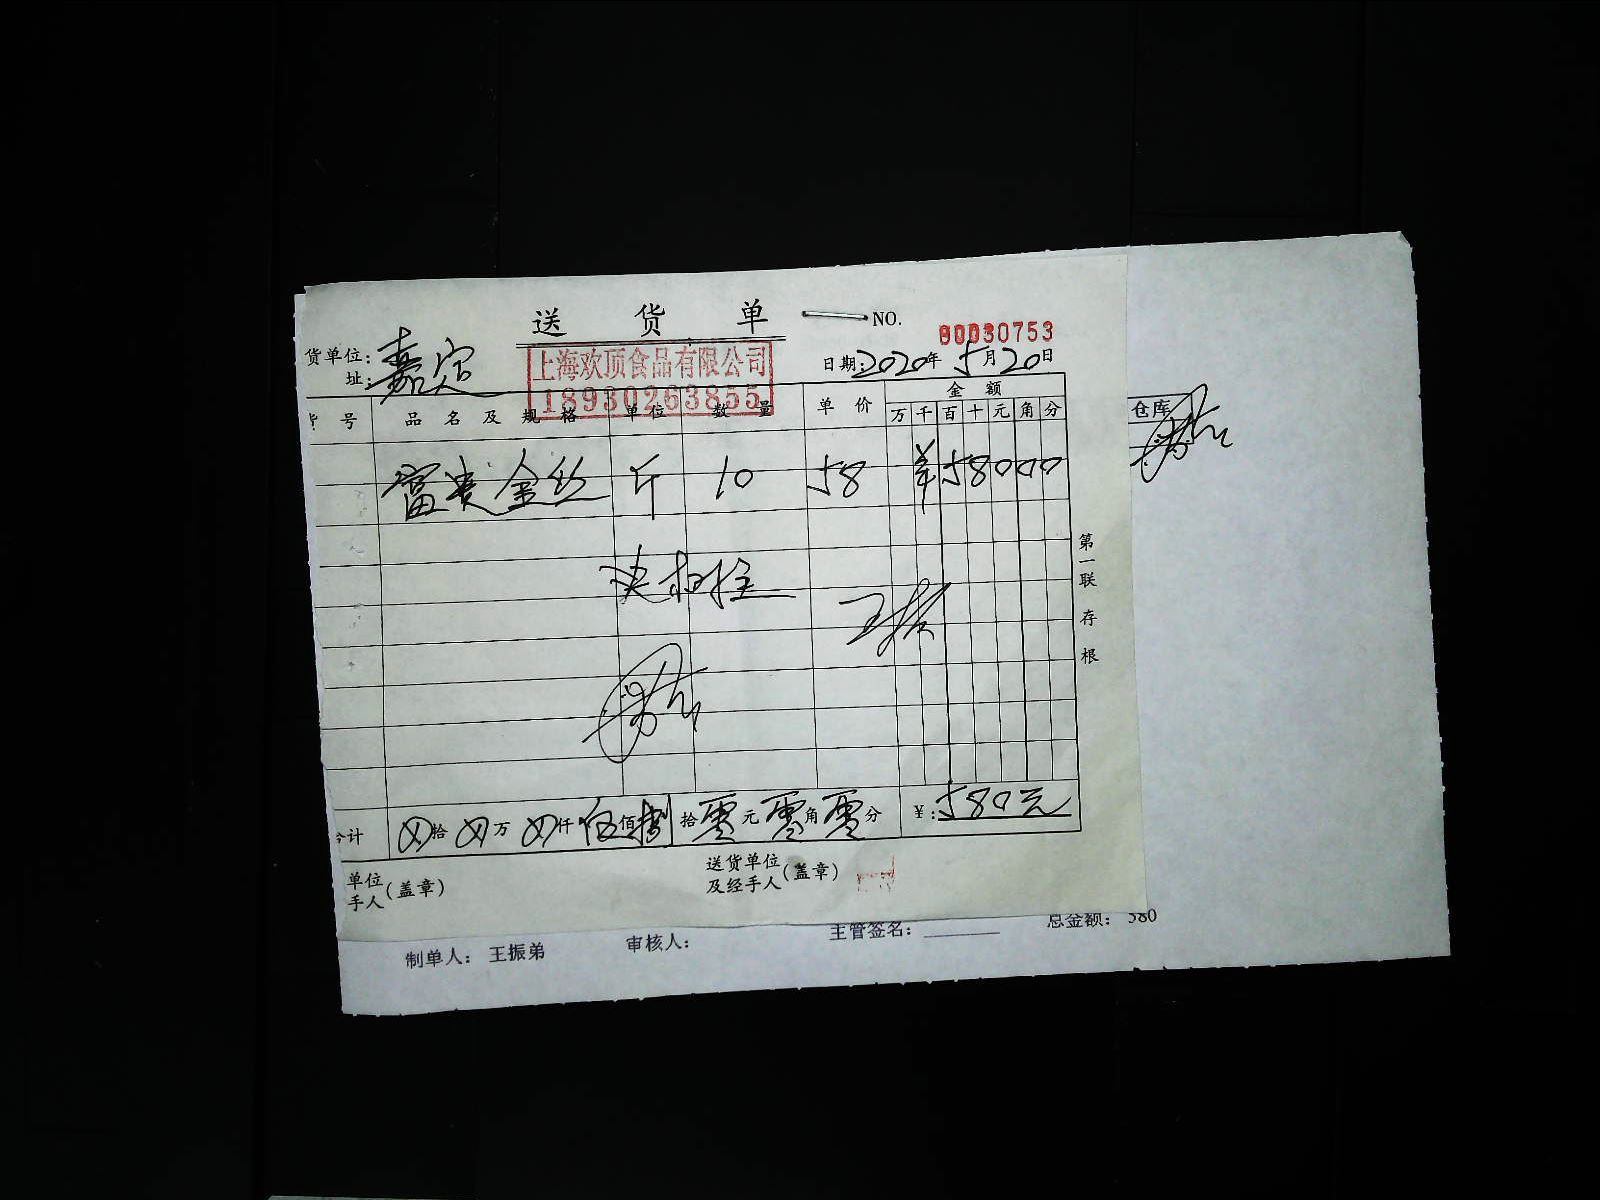 送 货 单 NO. 00030753
货单位: 嘉定
址:
上海欢顶食品有限公司
18930263855
日期: 2020年 5月20日
号 品名及规格 单位 数量 单价 金额
万 千 百 十 元 角 分
富贵金丝 斤 10 58 ¥58000
王振
第一联 存根
合计 ⊗拾 ⊗万 ⊗仟 伍佰捌拾零元零角零分 ¥: 580元
单位
手人(盖章)
送货单位
及经手人(盖章)
仓库
制单人: 王振弟 审核人: 主管签名: 总金额: 580